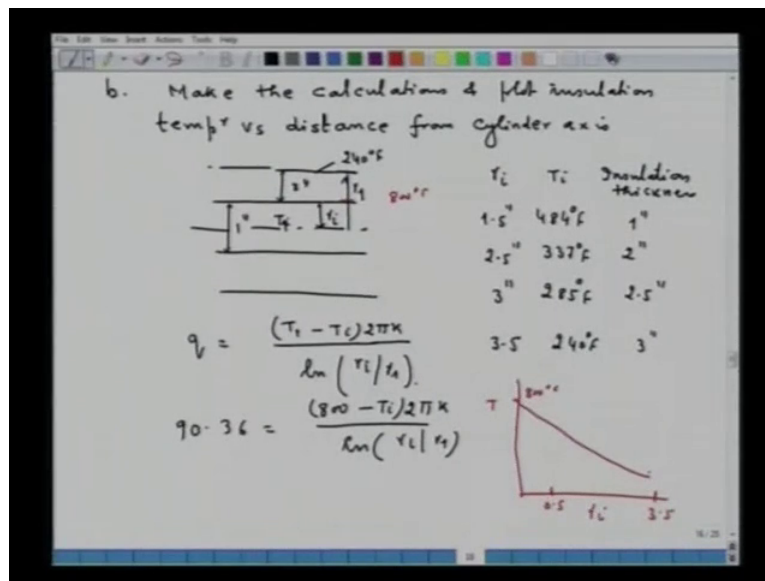 File Edit View Insert Actions Tools Help
b. Make the calculations & plot insulation
tempr vs distance from cylinder axis
240°F
3" r1 800°F
1" T1 ri
ri Ti Insulation thickness
1.5" 484°F 1"
2.5" 337°F 2"
3" 285°F 2.5"
3.5 240°F 3"
q = (T1 - Ti) 2πK / ln (ri/r1).
90.36 = (800 - Ti) 2πK / ln (ri/r1)
T 800°F
0.5 ri 3.5
16/25